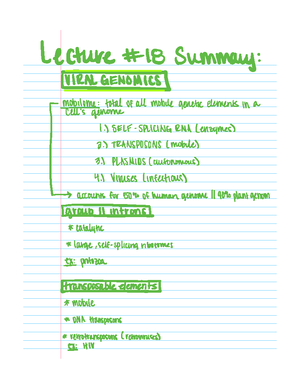 Lecture #18 Summary:
VIRAL GENOMICS
mobilome: total of all mobile genetic elements in a
cell's genome
1.) SELF-SPLICING RNA (enzymes)
2.) TRANSPOSONS (mobile)
3.) PLASMIDS (autonomous)
4.) Viruses (infectious)
accounts for 50% of human genome || 90% plant genom
group II introns
* catalytic
* large, self-splicing ribozymes
EX:
transposable elements
* mobile
* DNA transposons
* retrotransposons (retroviruses)
EX: HIV